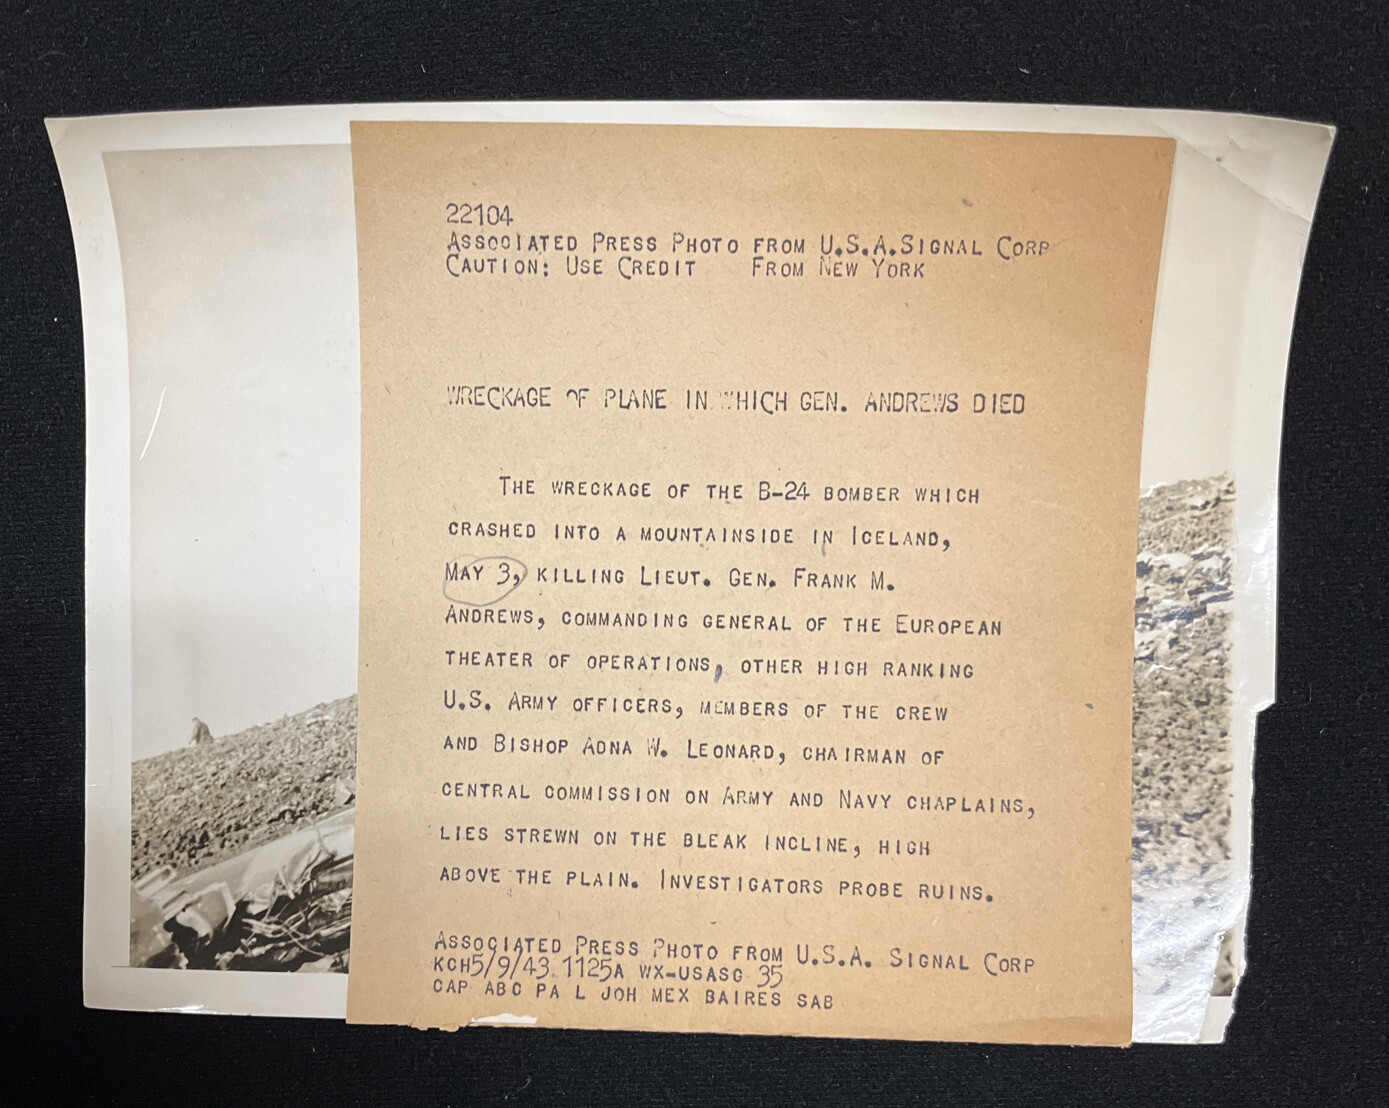 22104
ASSOCIATED PRESS PHOTO FROM U.S.A.SIGNAL CORP
CAUTION: USE CREDIT FROM NEW YORK
WRECKAGE OF PLANE IN WHICH GEN. ANDREWS DIED
THE WRECKAGE OF THE B-24 BOMBER WHICH
CRASHED INTO A MOUNTAINSIDE IN ICELAND,
MAY 3, KILLING LIEUT. GEN. FRANK M.
ANDREWS, COMMANDING GENERAL OF THE EUROPEAN
THEATER OF OPERATIONS, OTHER HIGH RANKING
U.S. ARMY OFFICERS, MEMBERS OF THE CREW
AND BISHOP ADNA W. LEONARD, CHAIRMAN OF
CENTRAL COMMISSION ON ARMY AND NAVY CHAPLAINS,
LIES STREWN ON THE BLEAK INCLINE, HIGH
ABOVE THE PLAIN. INVESTIGATORS PROBE RUINS.
ASSOCIATED PRESS PHOTO FROM U.S.A. SIGNAL CORP
KCH5/9/43 1125A WX-USASG 35
CAP ABC PA L JOH MEX BAIRES SAB